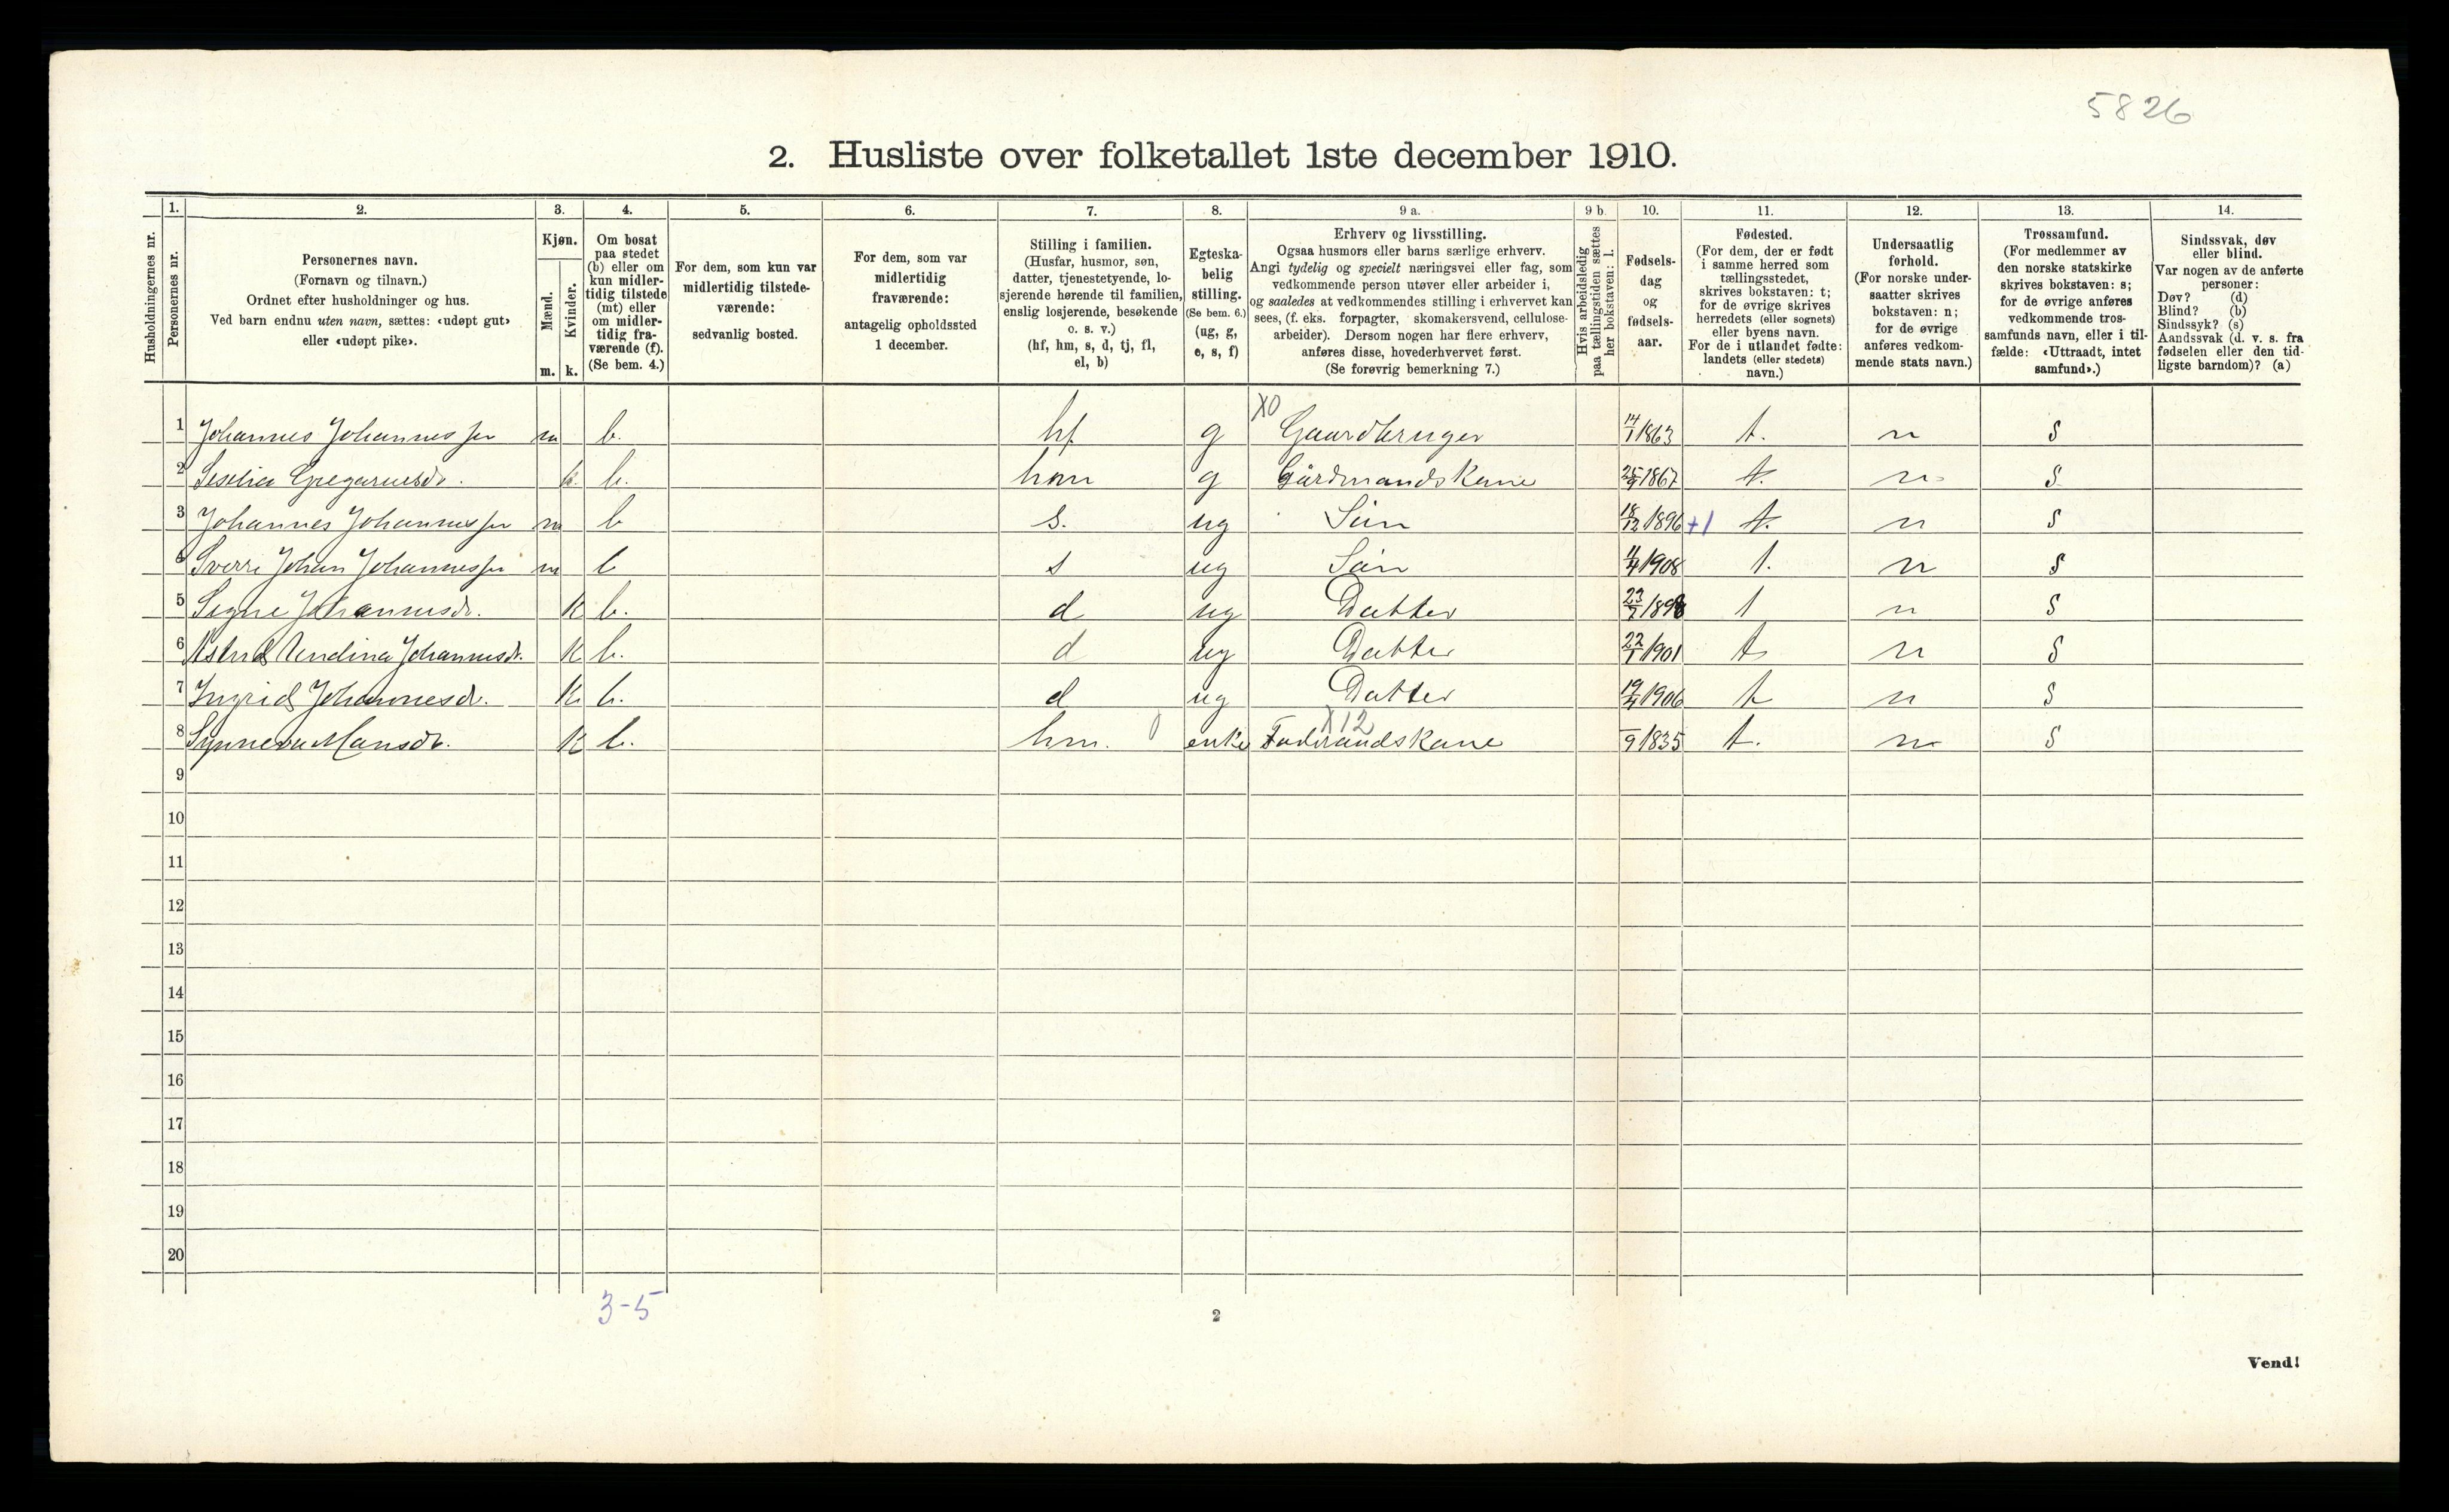 5826
2. Husliste over folketallet 1ste december 1910.
1. 2. 3. 4. 5. 6. 7. 8. 9 a. 9 b. 10. 11. 12. 13. 14.
Husholdningernes nr.
Personernes nr.
Personernes navn.
(Fornavn og tilnavn.)
Ordnet efter husholdninger og hus.
Ved barn endnu uten navn, sættes: «udøpt gut»
eller «udøpt pike».
Kjøn.
Mænd.
Kvinder.
m. k.
Om bosat
paa stedet
(b) eller om
kun midler-
tidig tilstede
(mt) eller
om midler-
tidig fra-
værende (f).
(Se bem. 4.)
For dem, som kun var
midlertidig tilstede-
værende:
sedvanlig bosted.
For dem, som var
midlertidig
fraværende:
antagelig opholdssted
1 december.
Stilling i familien.
(Husfar, husmor, søn,
datter, tjenestetyende, lo-
sjerende hørende til familien,
enslig losjerende, besøkende
o. s. v.)
(hf, hm, s, d, tj, fl,
el, b)
Egteska-
belig
stilling.
(Se bem. 6.)
(ug, g,
e, s, f)
Erhverv og livsstilling.
Ogsaa husmors eller barns særlige erhverv.
Angi tydelig og specielt næringsvei eller fag, som
vedkommende person utøver eller arbeider i,
og saaledes at vedkommendes stilling i erhvervet kan
sees, (f. eks. forpagter, skomakersvend, cellulose-
arbeider). Dersom nogen har flere erhverv,
anføres disse, hovederhvervet først.
(Se forøvrig bemerkning 7.)
Hvis arbeidsledig
paa tællingstiden sættes
her bokstaven: l.
Fødsels-
dag
og
fødsels-
aar.
Fødested.
(For dem, der er født
i samme herred som
tællingsstedet,
skrives bokstaven: t;
for de øvrige skrives
herredets (eller sognets)
eller byens navn.
For de i utlandet fødte:
landets (eller stedets)
navn.)
Undersaatlig
forhold.
(For norske under-
saatter skrives
bokstaven: n;
for de øvrige
anføres vedkom-
mende stats navn.)
Trossamfund.
(For medlemmer av
den norske statskirke
skrives bokstaven: s;
for de øvrige anføres
vedkommende tros-
samfunds navn, eller i til-
fælde: «Uttraadt, intet
samfund».)
Sindssvak, døv
eller blind.
Var nogen av de anførte
personer:
Døv? (d)
Blind? (b)
Sindssyk? (s)
Aandssvak (d. v. s. fra
fødselen eller den tid-
ligste barndom)? (a)
X0
1 Johannes Johannessen m b. hf g Gaardbruger 14/1 1863 t. n s
2 Seselia Gregariusdr. k. b. hm g Gårdmandskone 25/9 1867 t. n s
3 Johannes Johannessen m b s. ug Sün 18/12 1896 +1 t. n s
4 Sverre Johan Johannessen m b s ug Sön 11/4 1908 t. n s
5 Signe Johannesdr. k b. d ug Datter 23/7 1898 t n s
6 Astrid Undina Johannesdr. k b. d ug Datter 22/1 1901 t n s
7 Ingrid Johannesdr. k b. d ug Datter 19/4 1906 t n s
X12
8 Synneva Mansdr. k b. hm. 0 enke Føderaadskone /9 1835 t. n s
9
10
11
12
13
14
15
16
17
18
19
20
3-5
2
Vend!